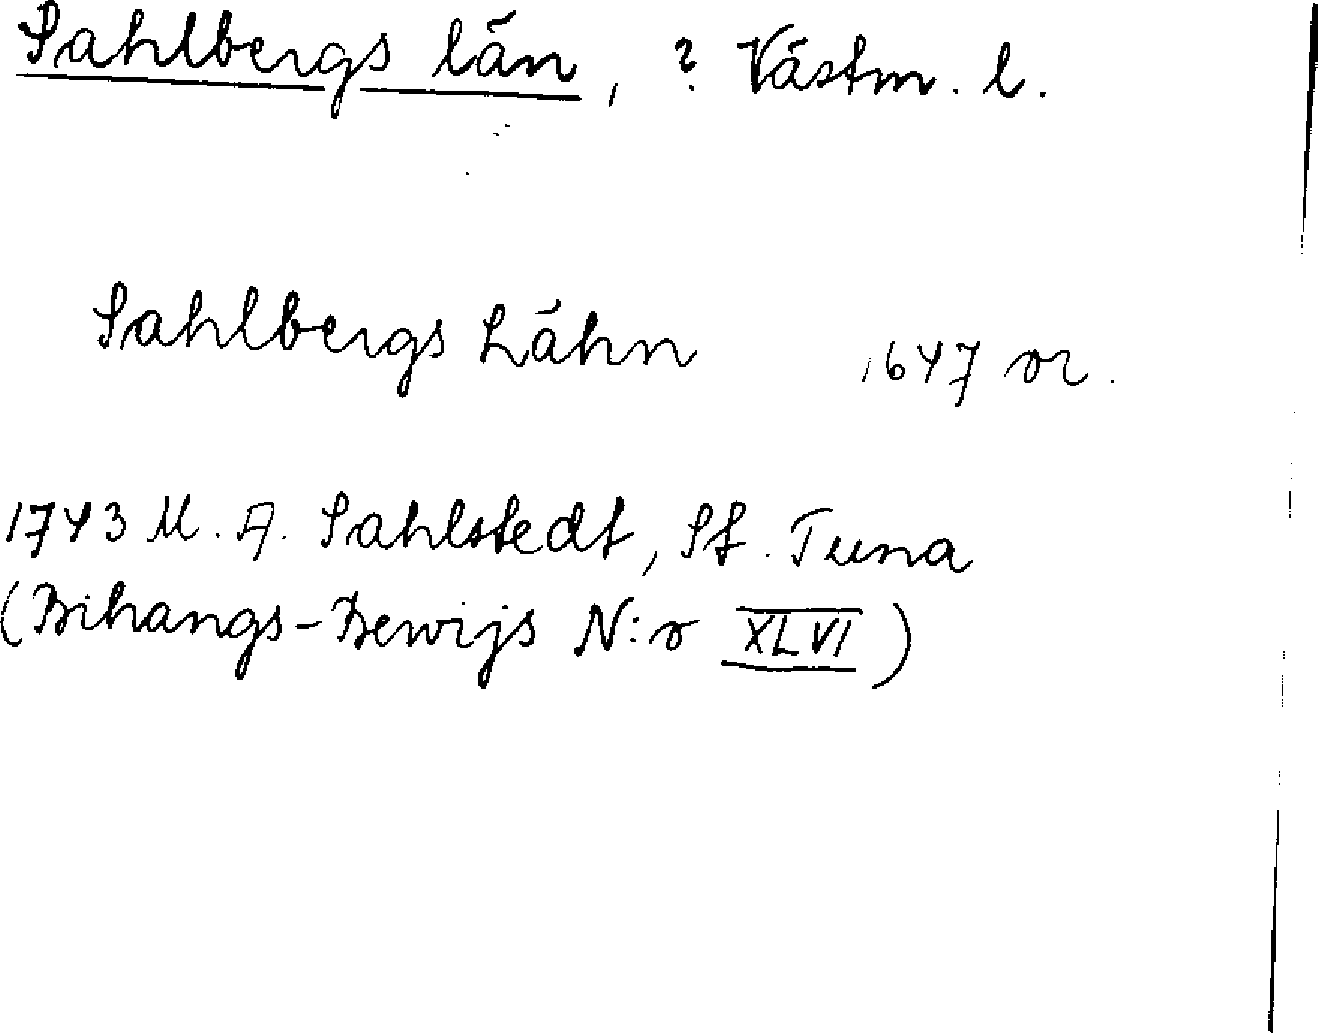 Sahlbergs län, ? Västm. l.
Sahlbergs Lähn 1647 or.
1743 M. A. Sahlstedt, St. Tuna
(Bihangs-Bewijs N:o XLVI)